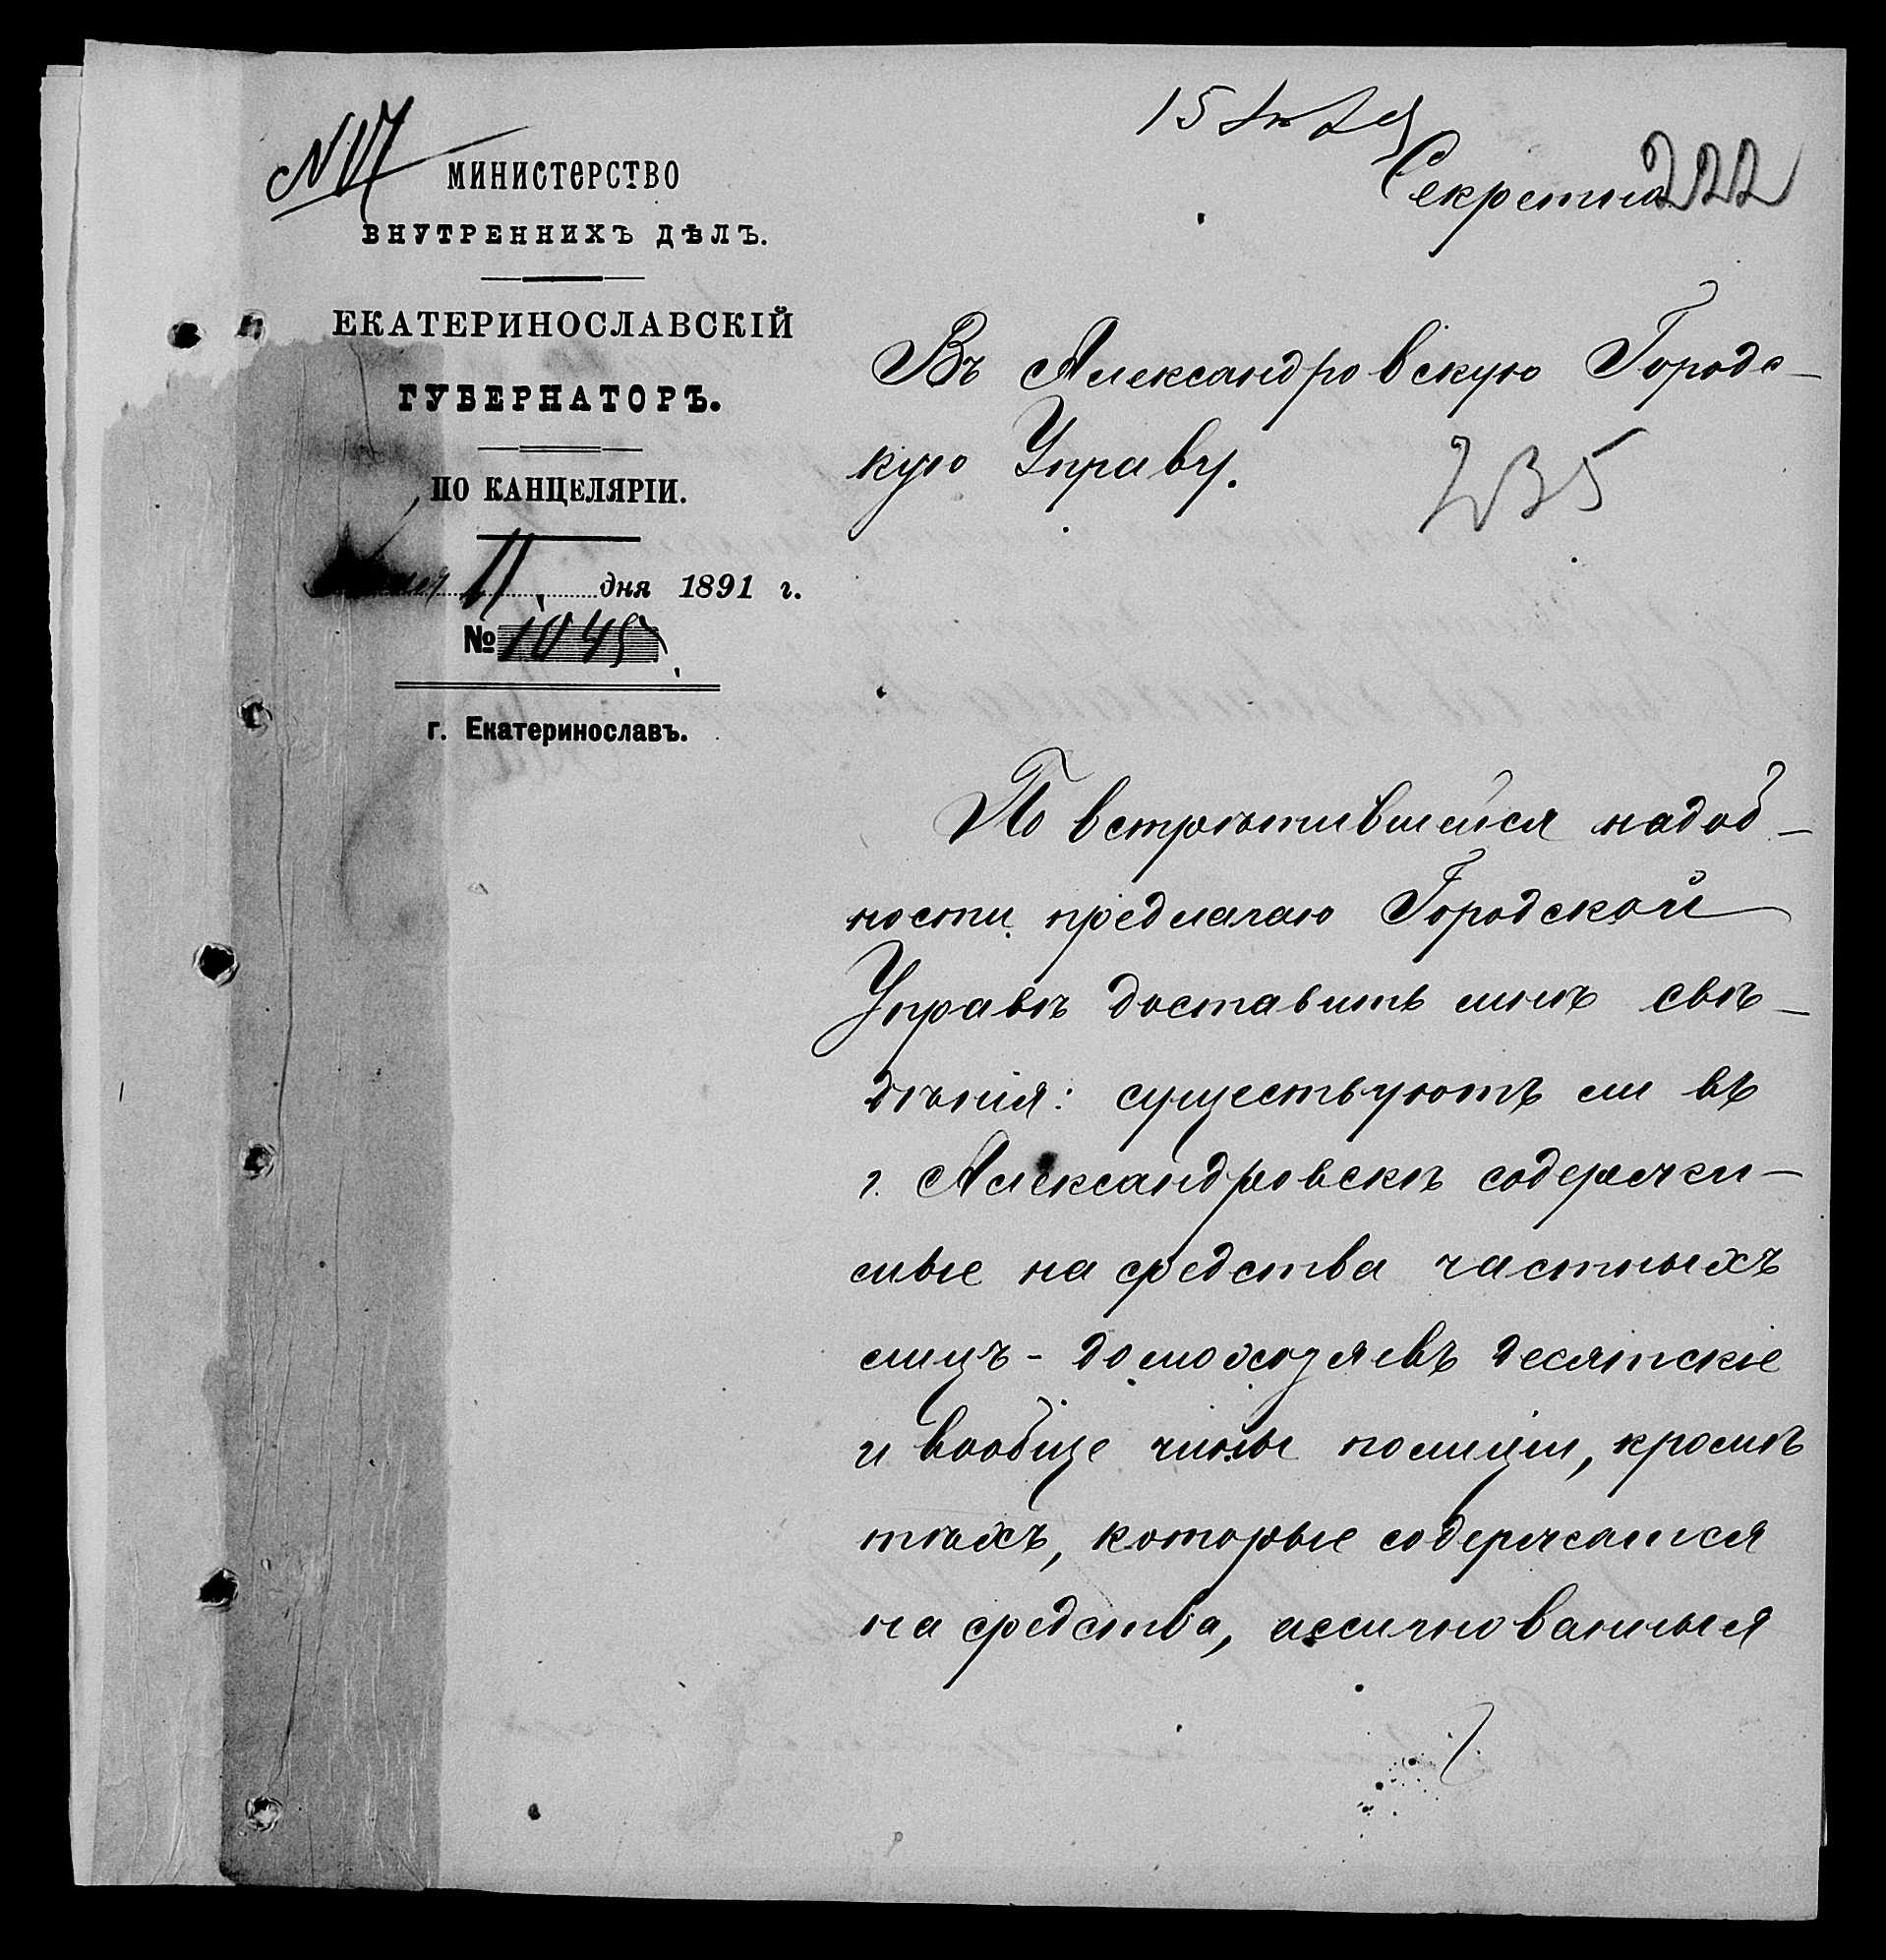 15 Іюля
Секретно
222
№ 17
МИНИСТЕРСТВО
ВНУТРЕННИХЪ ДѢЛЪ.
ЕКАТЕРИНОСЛАВСКІЙ
ГУБЕРНАТОРЪ.
ПО КАНЦЕЛЯРІИ.
11 дня 1891 г.
№ 1045
г. Екатеринославъ.
Въ Александровскую Городс-
кую Управу.
235
По встрѣтившейся надоб-
ности предлагаю Городской
Управѣ доставить мнѣ свѣ-
дѣнія: существуютъ ли въ
г. Александровскѣ содержи-
мые на средства частныхъ
лицъ - домохозяевъ десятскіе
и вообще чины полиціи, кромѣ
тѣхъ, которые содержатся
на средства, ассигнованныя